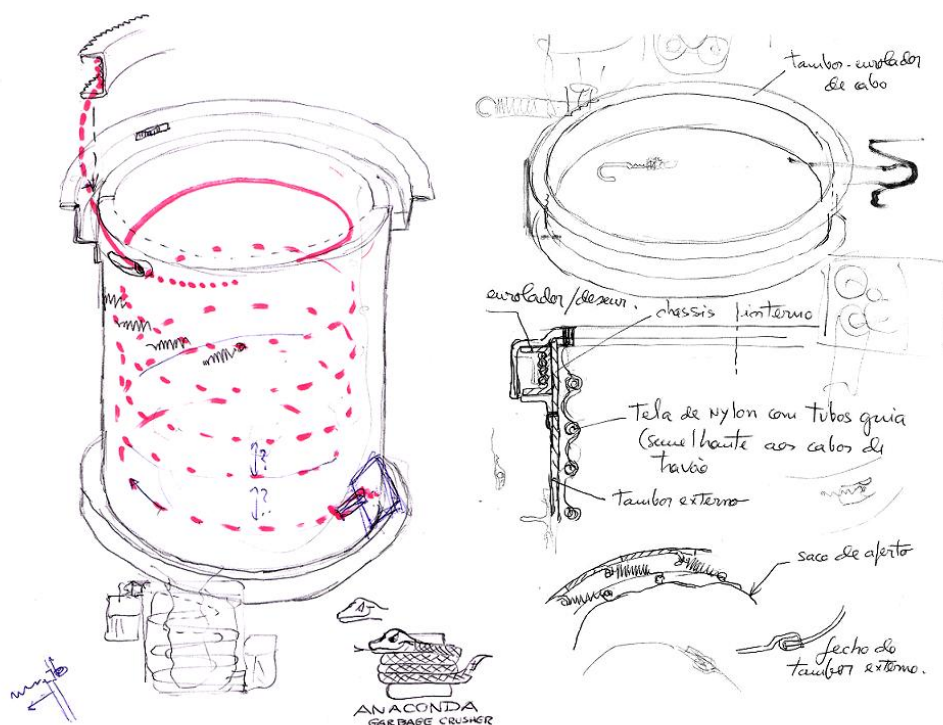 tambor-enrolador
de cabo
enrolador/desenr.
chassis interno
Tela de Nylon com tubos guia
(semelhante aos cabos de
travão
tambor externo
saco de aperto
fecho do
tambor externo.
?
?
ANACONDA
GARBAGE CRUSHER